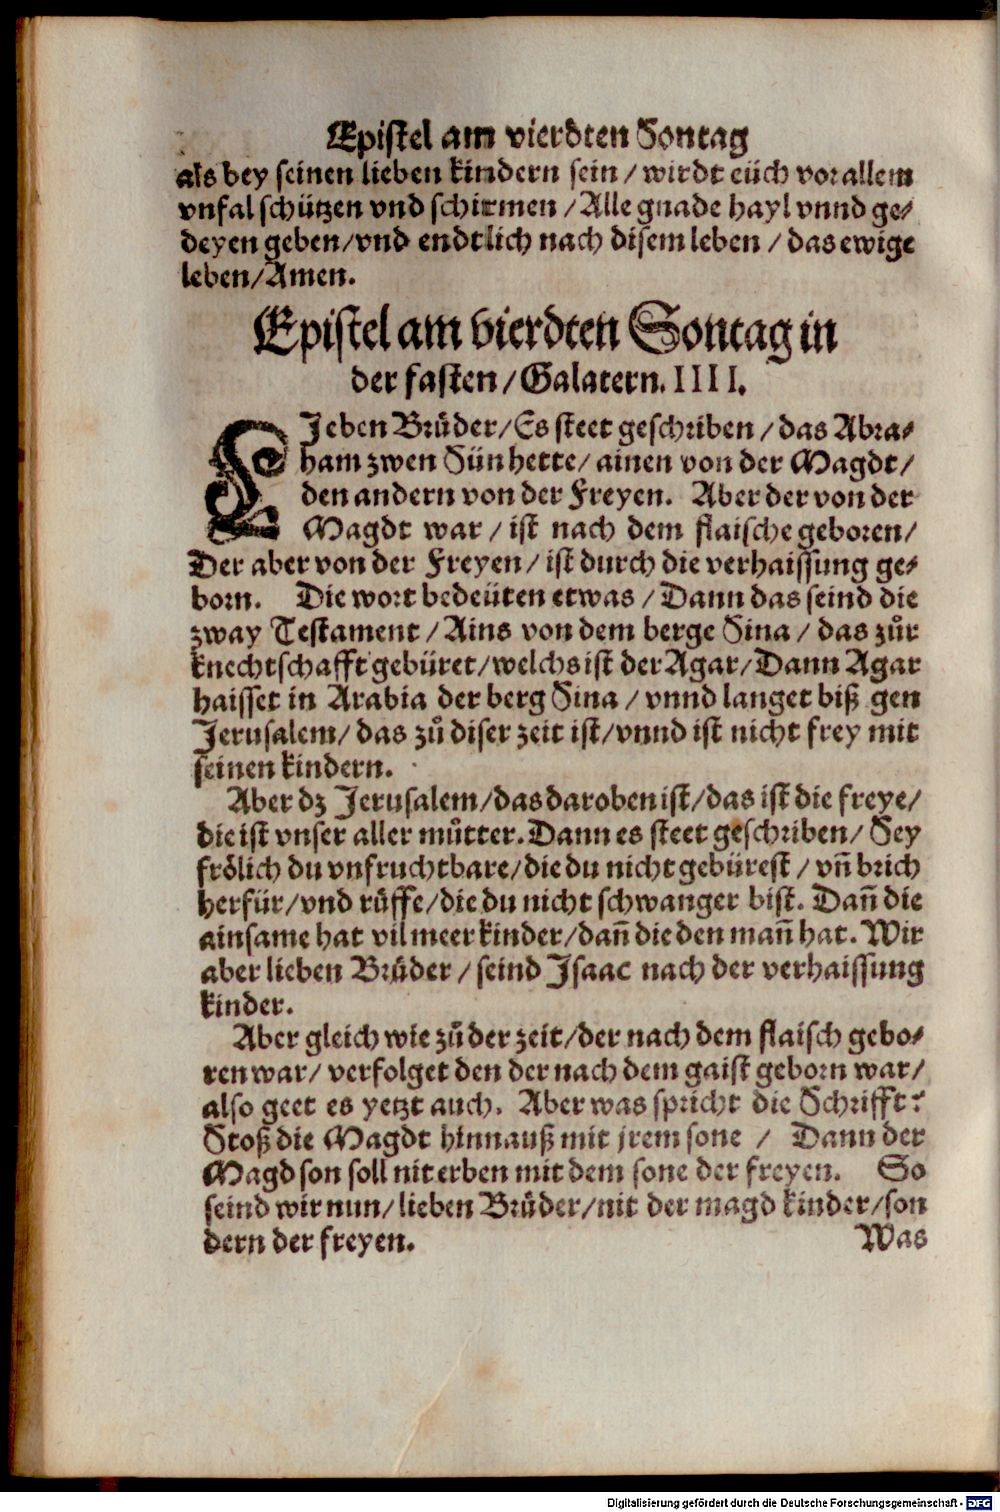 Epistel am vierdten Sontag
als bey seinen lieben kindern sein / wirdt eüch vor allem
vnfal schützen vnd schirmen / Alle gnade hayl vnnd ge-
deyen geben/vnd endtlich nach disem leben / das ewige
leben/Amen.
Epistel am vierdten Sontag in
der fasten / Galatern. IIII.
LJeben Brůder/Es steet geschriben / das Abra-
ham zwen Sün hette/ ainen von der Magdt/
den andern von der Freyen. Aber der von der
Magdt war / ist nach dem flaische geboren/
Der aber von der Freyen / ist durch die verhaissung ge-
born. Die wort bedeüten etwas / Dann das seind die
zway Testament / Ains von dem berge Sina / das zůr
knechtschafft gebüret/welchs ist der Agar/Dann Agar
haisset in Arabia der berg Sina / vnnd langet biß gen
Jerusalem/ das zů diser zeit ist/vnnd ist nicht frey mit
seinen kindern.
Aber dz Jerusalem/das daroben ist/das ist die freye/
die ist vnser aller můtter. Dann es steet geschriben/ Sey
frölich du vnfruchtbare/die du nicht gebürest / vñ brich
herfür/vnd růffe/die du nicht schwanger bist. Dañ die
ainsame hat vil meer kinder/dañ die den mañ hat. Wir
aber lieben Brůder / seind Isaac nach der verhaissung
kinder.
Aber gleich wie zů der zeit/der nach dem flaisch gebo-
ren war/ verfolget den der nach dem gaist geborn war/
also geet es yetzt auch. Aber was spricht die Schrifft?
Stoß die Magdt hinnauß mit jrem sone / Dann der
Magd son soll nit erben mit dem sone der freyen. So
seind wir nun/lieben Brůder/nit der magd kinder/son
dern der freyen. Was
Digitalisierung gefördert durch die Deutsche Forschungsgemeinschaft - DFG